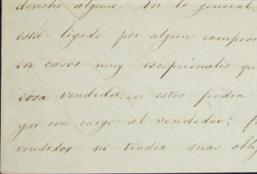 derecho alguno. En lo general,
esté ligado por algun comprom
en casos muy escepcionales qu
cosa vendida, en estos podra
gir con cargo al vendedor; p
vendedor no tendra mas oblig